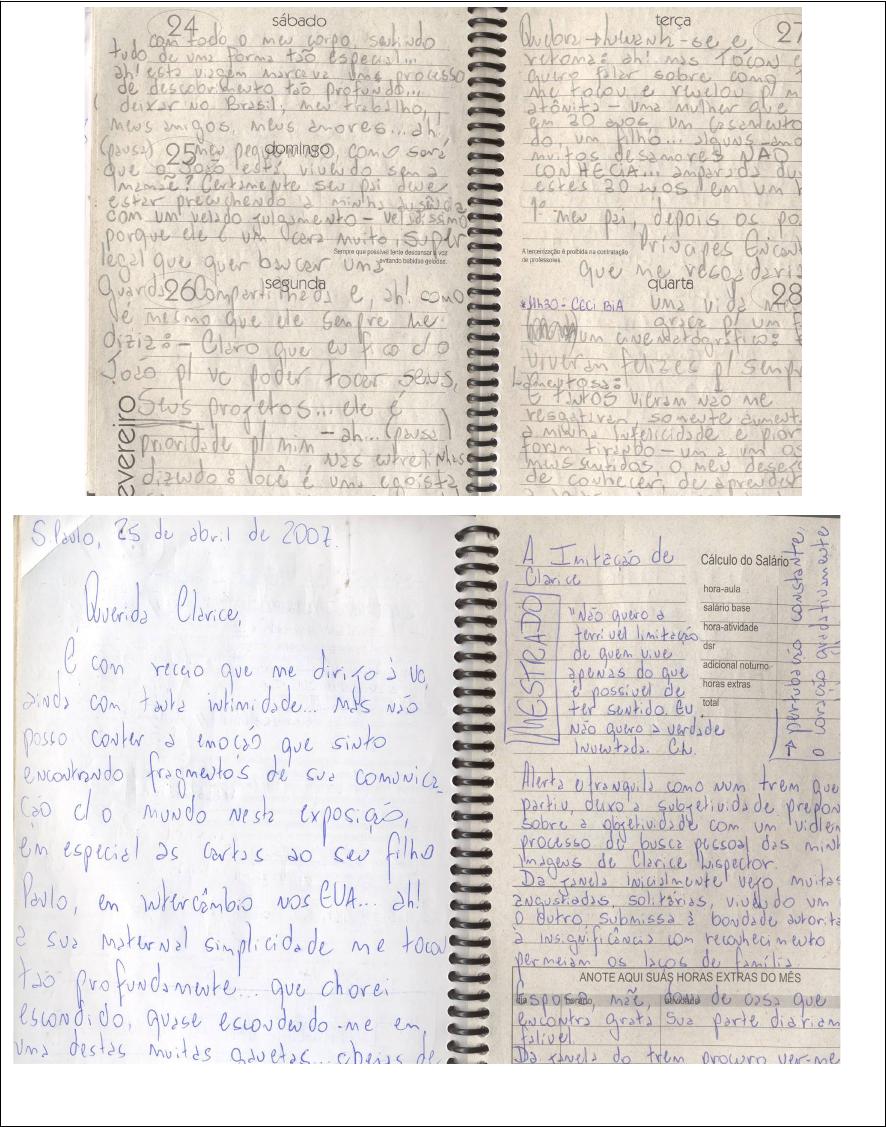 24
sábado
com todo o meu corpo, sentindo
tudo de uma forma tão especial...
ah! esta viagem marcava um processo
de descobrimento tão profundo...
deixar no Brasil; meu trabalho,
meus amigos, meus amores... ah!
25
domingo
(pausa) meu pequenino, como será
que o João está vivendo sem a
mamãe? Certamente seu pai deve
estar preenchendo a minha ausência
com um velado julgamento – veladíssimo
porque ele é um cara muito, super
Sempre que possível tente descansar a voz
evitando bebidas geladas.
legal que quer buscar uma
26
segunda
Guarda Compartilhada e, ah! como
é mesmo que ele sempre me
diz: – Claro que eu fico c/o
João p/ vc poder tocar seus,
Seus projetos... ele é
prioridade p/ mim – ah... (pausa)
nas entrelinhas
dizendo: Você é uma egoísta
evereiro
terça
27
se e,
retoma: ah! mas TOCOU e
quero falar sobre como
me tocou e revelou p/ m
atônita – uma mulher que
em 30 anos um casamento
do, um filho... alguns amo
muitos desamores NÃO
CONHECIA... amparada du
estes 30 anos em um
1º meu pai, depois os po
A terceirização é proibida na contratação
de professores.
Príncipes Encant
que me resgataria
quarta
28
*11h30 - CECI BIA
uma vida
graça p/ um f
um cinematográfico:
viveram felizes p/ sempr
Lamentosa:
E tantos vieram não me
resgataram, somente aument
a minha infelicidade e pior
foram tirando – um a um os
meus sentidos, o meu desejo
de conhecer, de aprender
S. Paulo, 25 de abril de 2007.
Querida Clarice,
É com receio que me dirijo à vc,
ainda com tanta intimidade... Mas não
posso conter a emoção que sinto
encontrando fragmentos de sua comunica-
ção c/o mundo nesta exposição,
em especial as cartas ao seu filho
Paulo, em intercâmbio nos EUA... ah!
a sua maternal simplicidade me tocou
tão profundamente... que chorei
escondido, quase escondendo-me em,
uma destas muitas gavetas... cheias de
A Imitação de
Clarice
MESTRADO
"Não quero a
terrível limitação
de quem vive
apenas do que
é possível de
ter sentido. Eu
não quero a verdade
inventada. Ch.
Cálculo do Salário
hora-aula
salário base
hora-atividade
dsr
adicional noturno
horas extras
total
→ perturbando constante,
o coração gradativamente
Alerta e tranquila como num trem que
partiu, deixo a subjetividade prepon
sobre a objetividade com um violen
processo de busca pessoal das minh
imagens de Clarice Lispector.
Da janela inicialmente vejo muitas
angustiadas, solitárias, vivendo um
o outro submissa à bondade autorita
à insignificância com reconhecimento
permeiam os laços de família.
ANOTE AQUI SUAS HORAS EXTRAS DO MÊS
Esposa, mãe, dona de casa que
encontra grata sua parte diariam
falível
Da janela do trem procuro ver-me